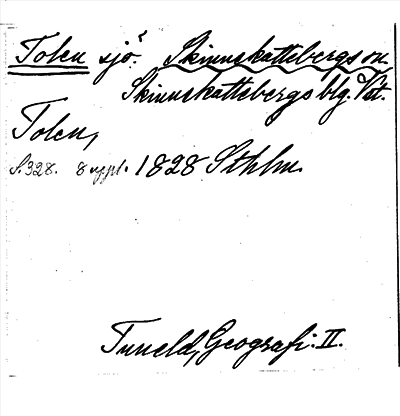 Tolen sjö. Skinnskattebergs sn.
Skinnskattebergs blg. Vstm.
Tolen,
S. 328. 8 uppl. 1828 Sthlm.
Tuneld, Geografi. II.